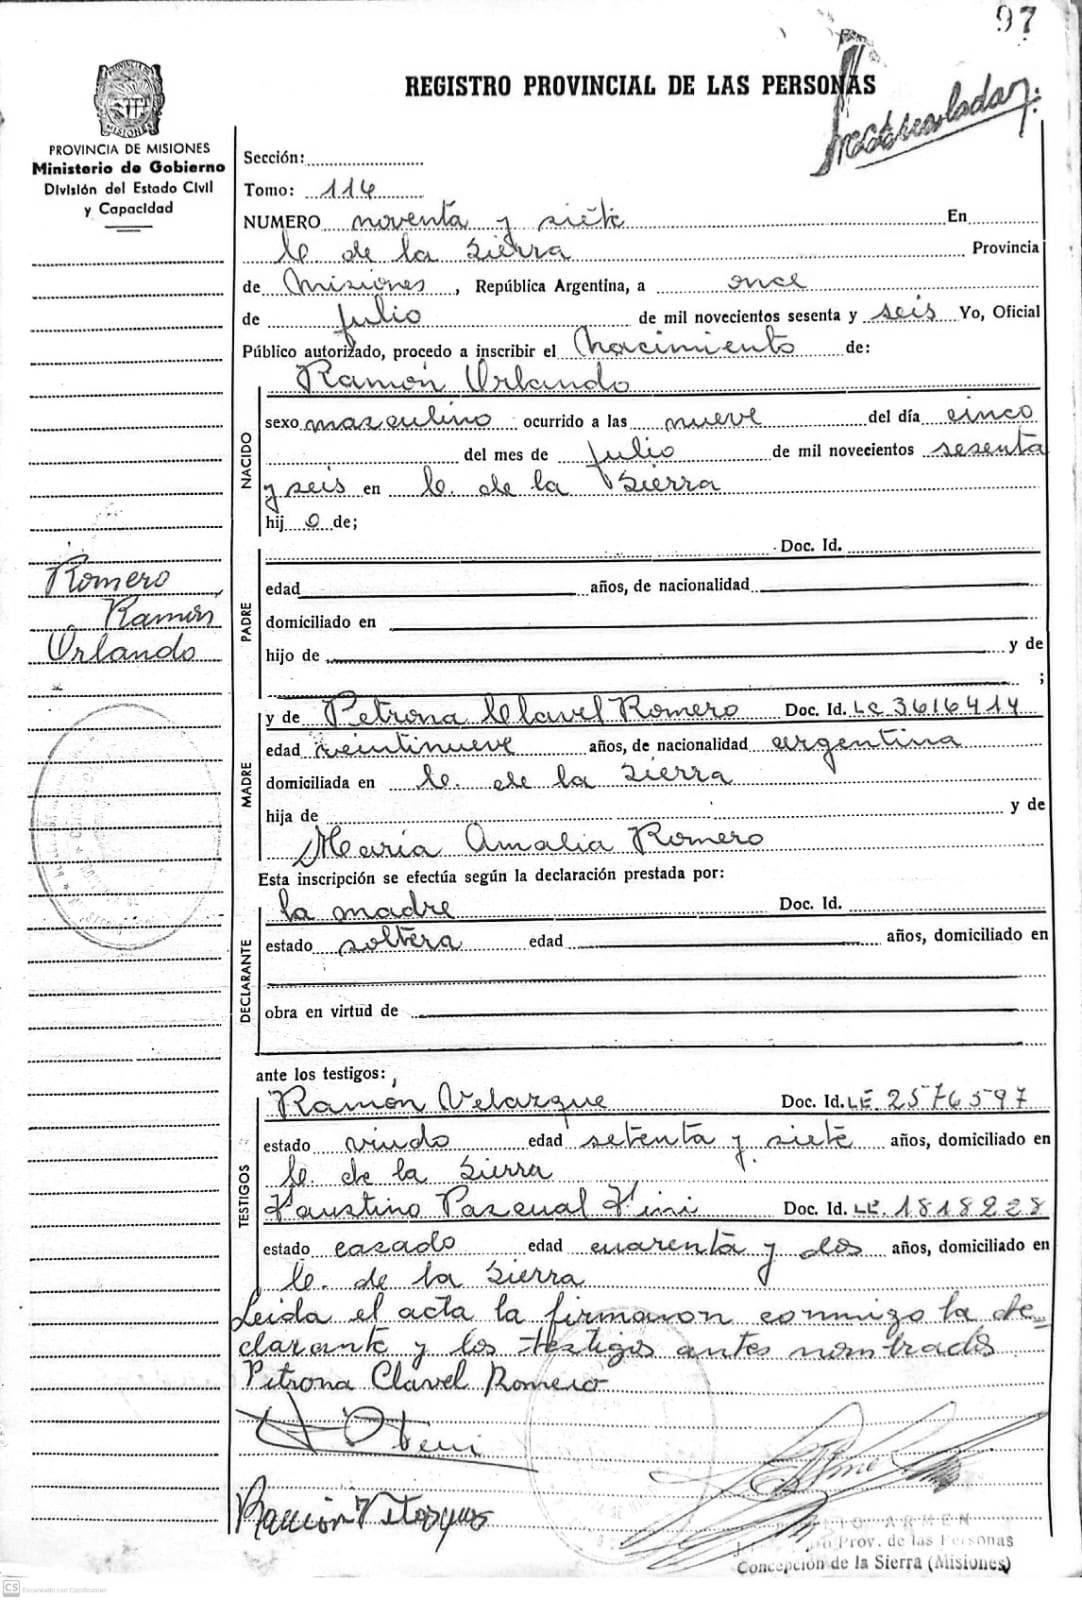 97
REGISTRO PROVINCIAL DE LAS PERSONAS
PROVINCIA DE MISIONES
Ministerio de Gobierno
División del Estado Civil
y Capacidad
Sección:
Tomo: 114
NUMERO noventa y siete En
C. de la Sierra Provincia
de Misiones, República Argentina, a once
de julio de mil novecientos sesenta y seis Yo, Oficial
Público autorizado, procedo a inscribir el Nacimiento de:
NACIDO
Ramón Orlando
sexo masculino ocurrido a las nueve del día cinco
del mes de julio de mil novecientos sesenta
y seis en C. de la Sierra
hij o de;
Romero
Ramón
Orlando
PADRE
Doc. Id.
edad años, de nacionalidad
domiciliado en
hijo de y de
;
MADRE
y de Petrona Clavel Romero Doc. Id. LC 3616414
edad veintinueve años, de nacionalidad argentina
domiciliada en C. de la Sierra
hija de y de
María Amalia Romero
Esta inscripción se efectúa según la declaración prestada por:
DECLARANTE
la madre Doc. Id.
estado soltera edad años, domiciliado en
obra en virtud de
ante los testigos:
TESTIGOS
Ramón Velazque Doc. Id. LE. 2576597
estado viudo edad setenta y siete años, domiciliado en
C. de la Sierra
Faustino Pascual Doc. Id. LE. 1818228
estado casado edad cuarenta y dos años, domiciliado en
C. de la Sierra
Leida el acta la firmaron conmigo la de-
clarante y los testigos antes nombrados
Petrona Clavel Romero
Ramón
Prov. de las Personas
Concepción de la Sierra (Misiones)
CS Escaneado con CamScanner